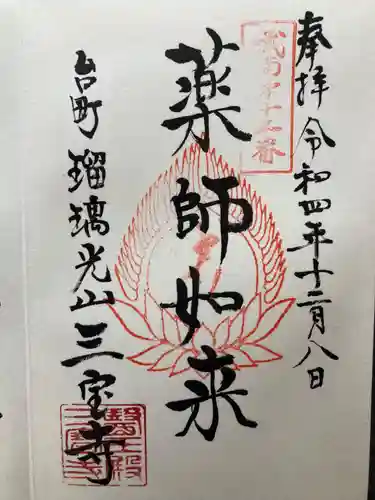 奉拝 令和四年十二月八日
薬師如来
台町 瑠璃光山三宝寺